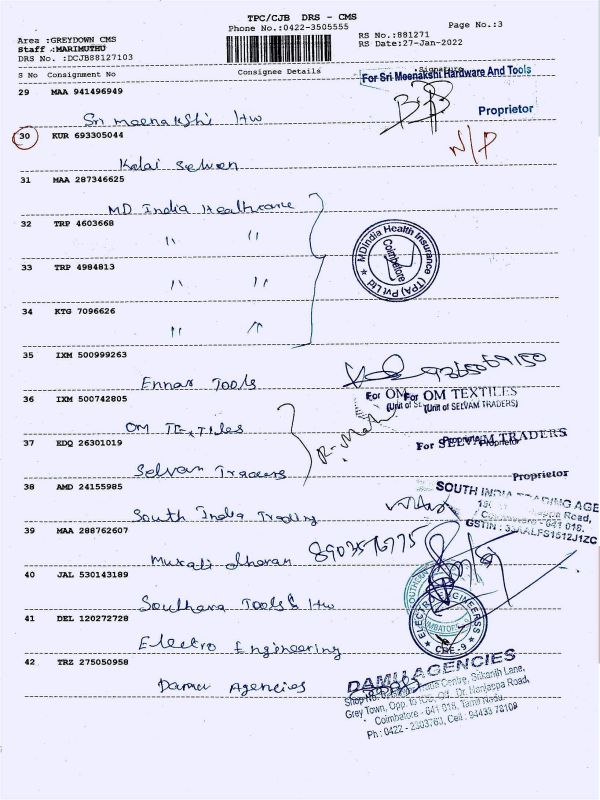 TPC/CJB DRS - CMS
Phone No.:0422-3505555
Page No.:3
Area :GREYDOWN CMS
Staff :MARIMUTHU
DRS No. :DCJB88127103
RS No.:881271
RS Date:27-Jan-2022
S No Consignment No Consignee Details Signature
29 MAA 941496949
Sri Meenakshi Hw
For Sri Meenakshi Hardware And Tools
Proprietor
30 KUR 693305044
N/P
Kalai Selvan
31 MAA 287346625
MD India Healthcare
32 TRP 4603668
" "
33 TRP 4984813
" "
MDIndia Health Insurance (TPA) Pvt Ltd
Coimbatore
34 KTG 7096626
" "
35 IXM 500999263
Ennar Tools
9365069150
36 IXM 500742805
OM Textiles
For OM For OM TEXTILES
(Unit of SE (Unit of SELVAM TRADERS)
37 EDQ 26301019
Selvan Traders
For SELVAM TRADERS
Proprietor
Proprietor
38 AMD 24155985
South India Trading
SOUTH INDIA TRADING AGE
Road,
641 018.
39 MAA 288762807
Murali dharan
40 JAL 530143189
Southern Tools & Hw
41 DEL 120272728
Electro Engineering
ELECTRO ENGINEERSS
CBE-9
42 TRZ 275050958
Damu Agencies
DAMU AGENCIES
Centre, Srikanth Lane,
Grey Town, Opp. to Off. Dr. Nanjappa Road,
Coimbatore - 641 018, Tamil Nadu.
Ph : 0422 - Cell : 94433